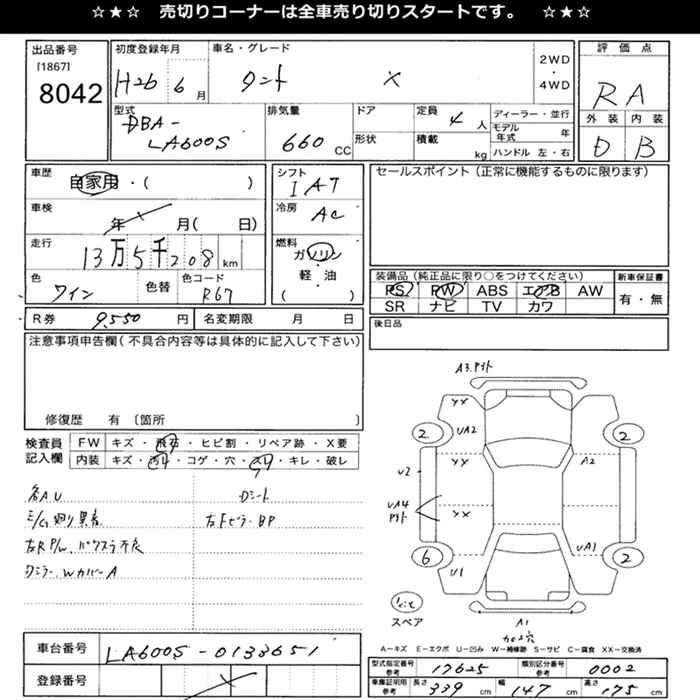 ☆★☆ 売切りコーナーは全車売り切りスタートです。 ☆★☆
出品番号 [1867] 8042
初度登録年月 H26 6月
車名・グレード タント X
2WD ・ 4WD
評価点 RA
外装 D 内装 B
型式 DBA-LA600S
排気量 660 CC
ドア 形状
定員 4人 積載 kg
ディーラー・並行
モデル年式 年
ハンドル 左・右
車歴 自家用・( )
車検 年 月( 日)
走行 13万5千208 km
色 ワイン 色替 色コード R67
シフト IAT
冷房 AC
燃料 ガソリン
軽・油
( )
セールスポイント(正常に機能するものに限ります)
装備品(純正品に限り○をつけてください)
PS PW ABS エアB AW
SR ナビ TV カワ
新車保証書 有・無
R券 9,550 円 名変期限 月 日
後日品
注意事項申告欄(不具合内容等は具体的に記入して下さい)
修復歴 有 〔箇所 〕
検査員記入欄
FW キズ・飛石・ヒビ割・リペア跡・X要
内装 キズ・汚れ・コゲ・穴・スレ・キレ・破レ
各AU Dシート
右Fピラー BP
右R P/w、バックスラ不良
Dミラー、WカバーA
A3
XX
2
UA2
2
XX
A2
U2
UA4
XX
6
U1
UA1
2
スペア
A1
A-キズ E-エクボ U-凹み W-補修跡 S-サビ C-腐食 XX-交換済
車台番号 LA600S-0133651
登録番号
型式指定番号 参考 17625 類別区分番号 参考 0002
車庫証明用 参考 長さ 339 cm 幅 147 cm 高さ 175 cm